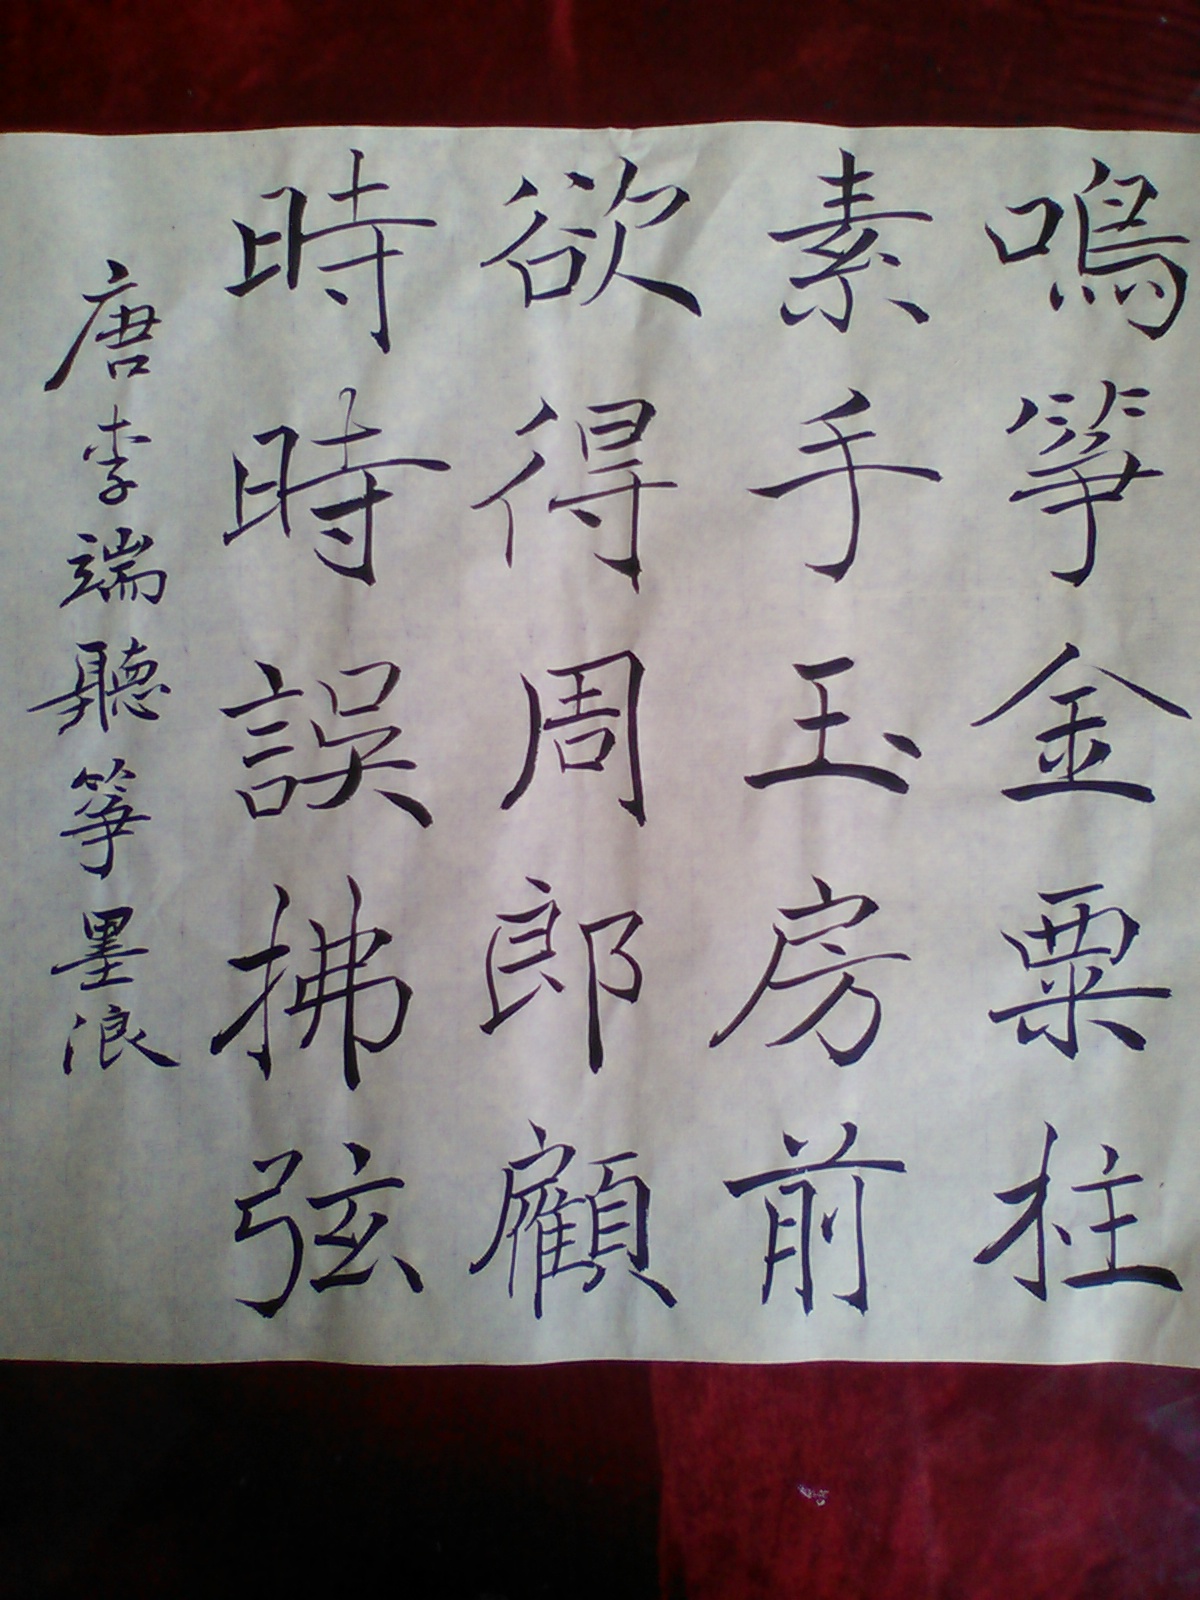 鳴箏金粟柱
素手玉房前
欲得周郎顧
時時誤拂弦
唐李端聽箏墨浪